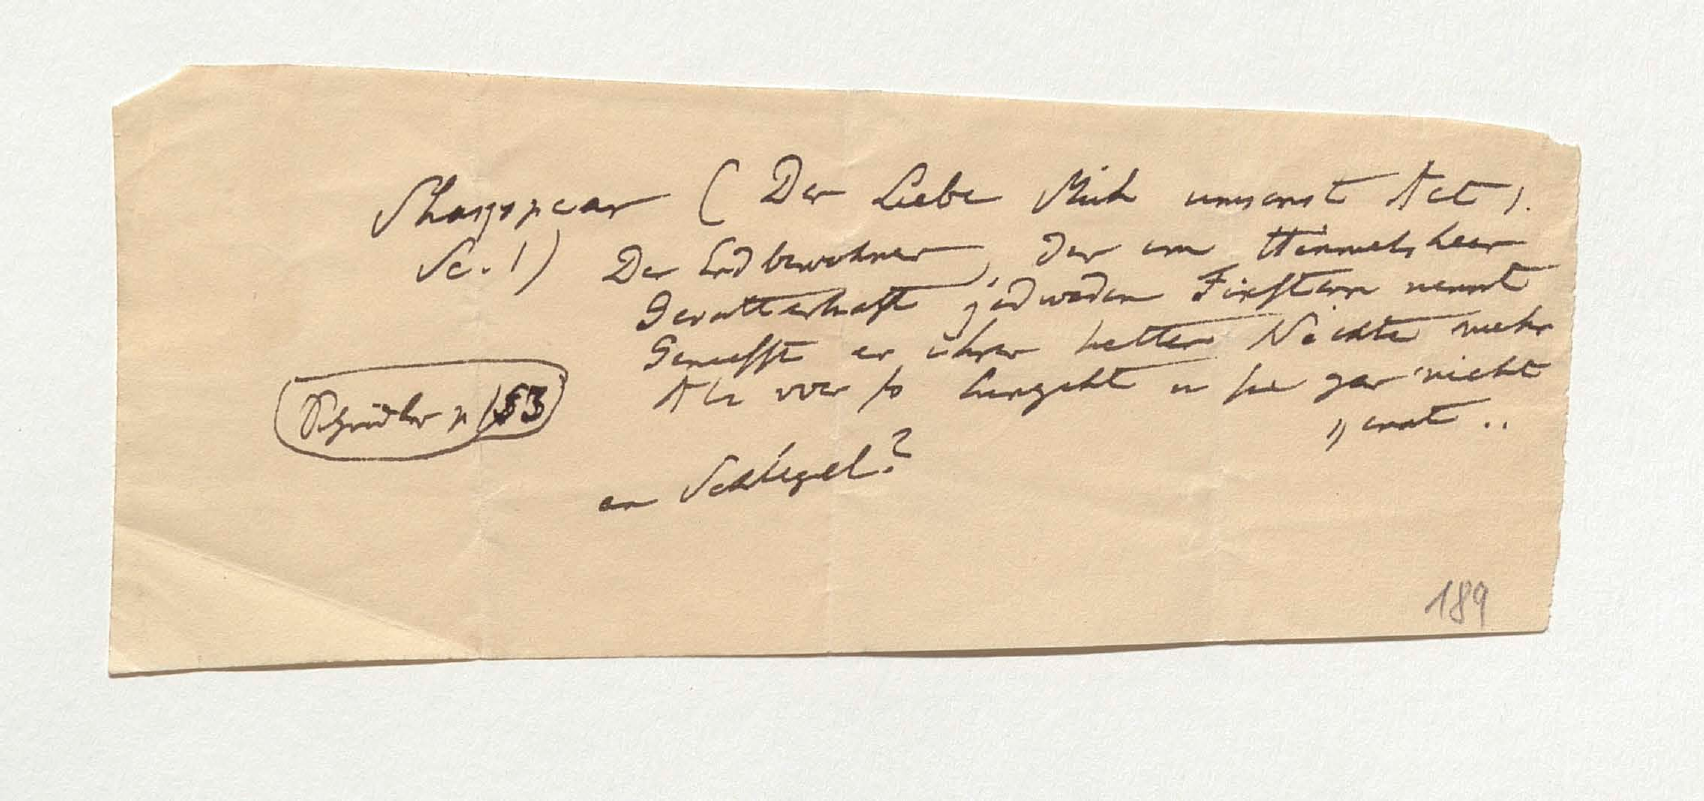 Shakspear ( Der Liebe Müh umsonst Act 1.
Sc. 1) Der Erdbewohner, der am Himmelsheer
Gevatterhaft jedweden Fixstern nennt
Geniesst er ihrer hellen Nächte mehr
Als wer so hingeht u sie gar nicht
" ennt ..
p 183
an Schlegel?
189